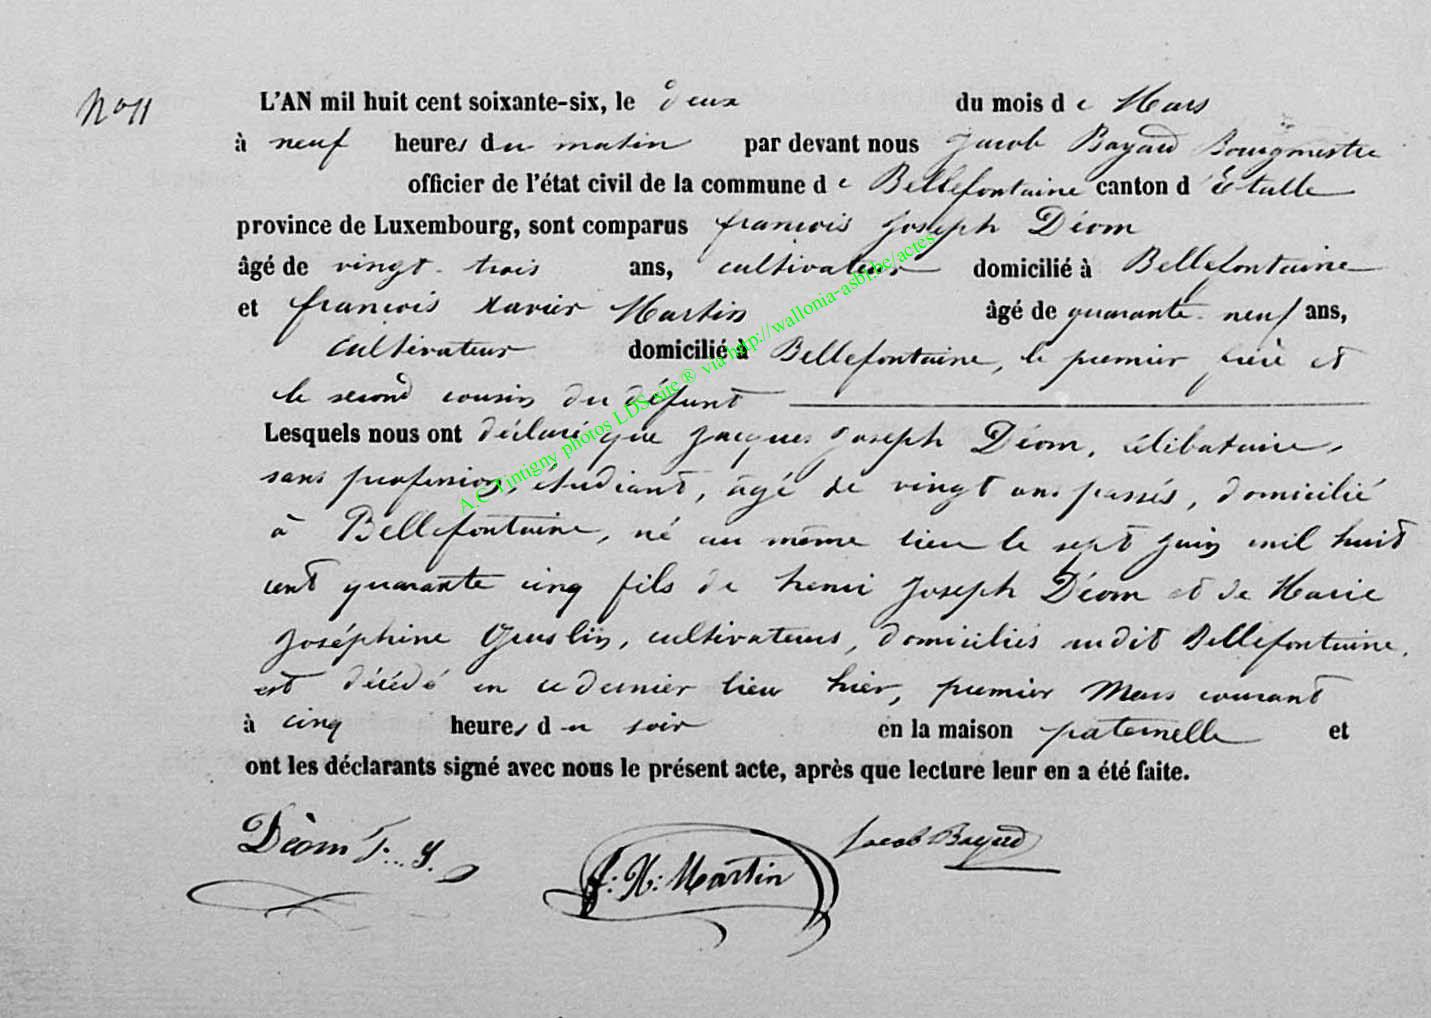 No 11
L'AN mil huit cent soixante-six, le deux du mois de Mars
à neuf heures du matin par devant nous Jacob Bayard Bourgmestre
officier de l'état civil de la commune de Bellefontaine canton d'Etalle
province de Luxembourg, sont comparus françois Joseph Déom
âgé de vingt-trois ans, cultivateur domicilié à Bellefontaine
et françois Xavier Martin âgé de quarante-neuf ans,
cultivateur domicilié à Bellefontaine, le premier frère et
le second cousin du défunt
Lesquels nous ont déclaré que Jacques Joseph Déom, célibataire,
sans profession, étudiant, âgé de vingt ans passés, domicilié
à Bellefontaine, né au même lieu le sept Juin mil huit
cent quarante cinq fils de henri Joseph Déom et de Marie
Joséphine Guslin, cultivateurs, domiciliés audit Bellefontaine,
est décédé en ce dernier lieu hier, premier Mars courant
à cinq heures du soir en la maison paternelle et
ont les déclarants signé avec nous le présent acte, après que lecture leur en a été faite.
Dèom F... J.
f: X: Martin
Jacob Bayard
A.C Tintigny photos LDS site ® via http://wallonia-asbl.be/actes